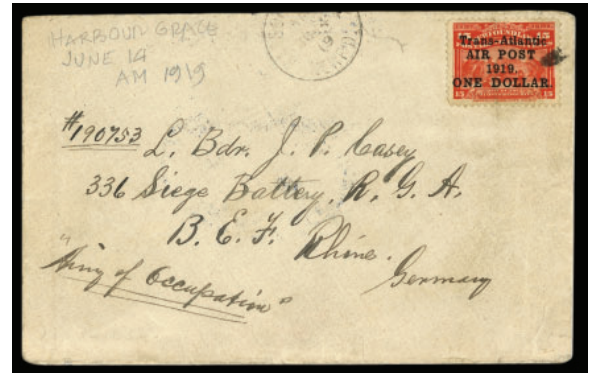 HARBOUR GRACE
JUNE 14
AM 1919
15
Trans-Atlantic
AIR POST
1919.
ONE DOLLAR.
15 15
#190753 L. Bdr. J. P. Casey
336 Siege Battery, R. G. A.
B. E. F. Rhine.
Germany
"Army of Occupation"